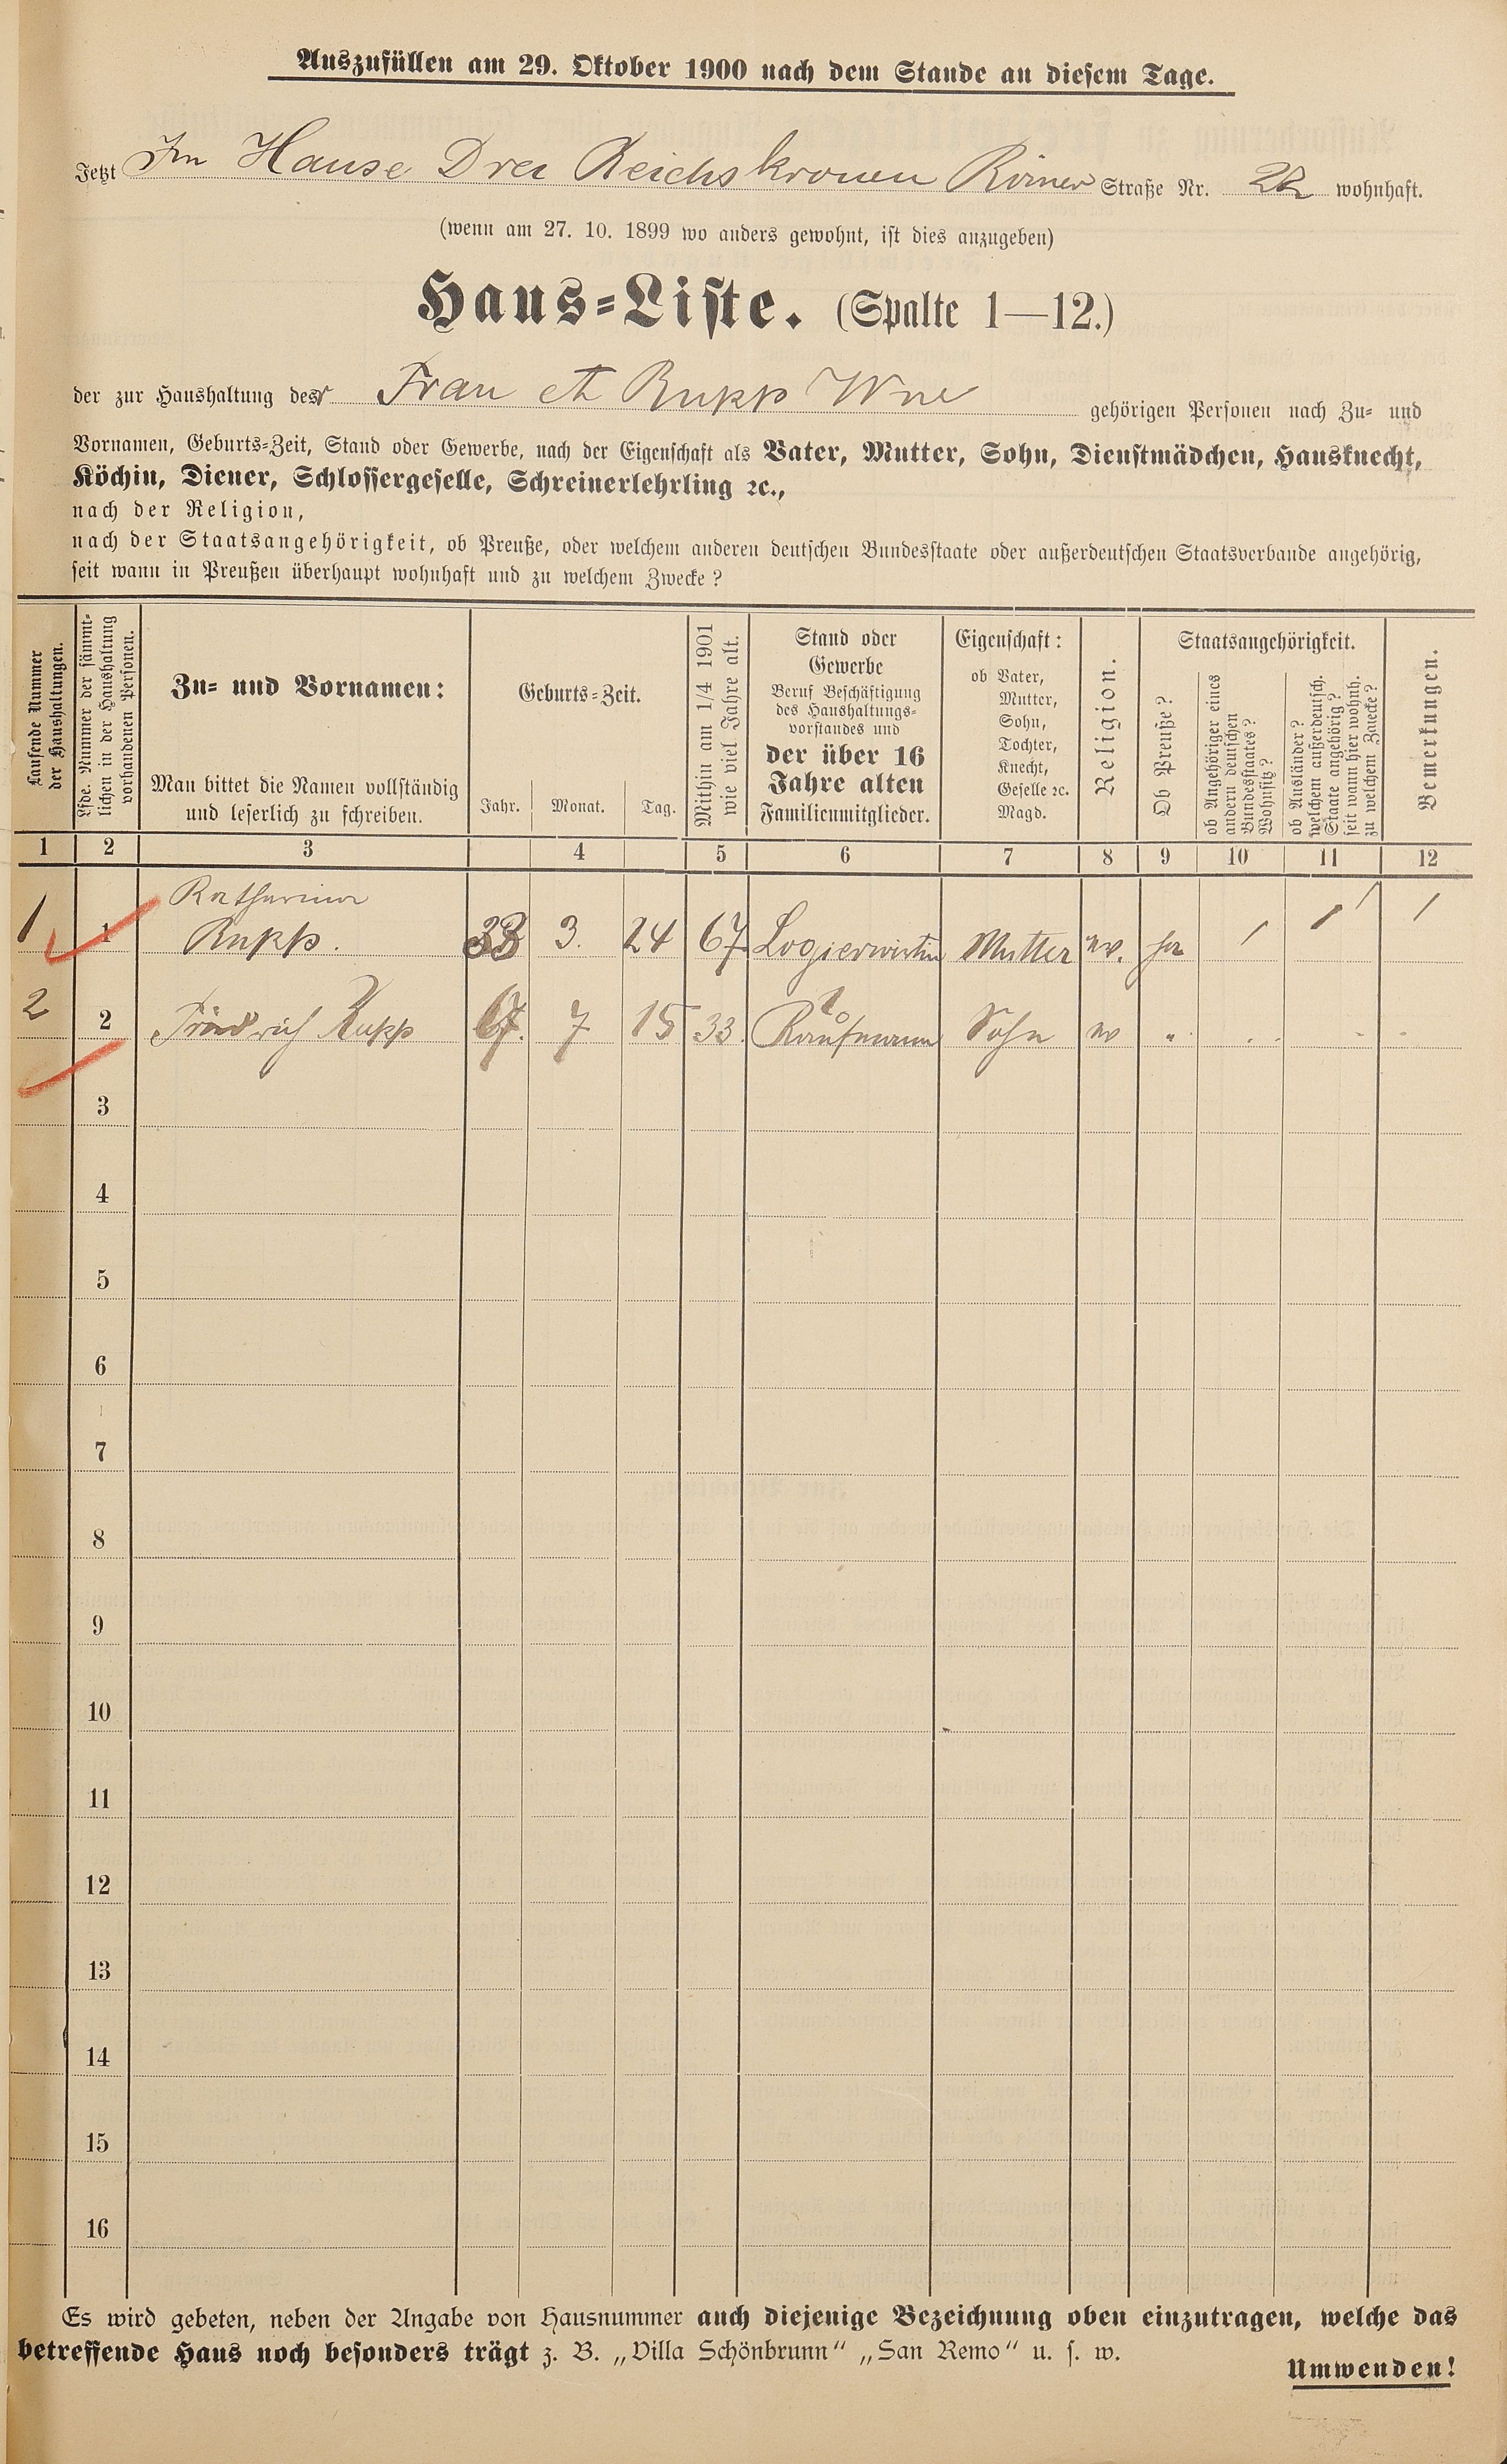 Auszufüllen am 29. Oktober 1900 nach dem Stande an diesem Tage.
Jetzt Im Hause Drei Reichskronen Römer Straße Nr. 22 wohnhaft.
(wenn am 27. 10. 1899 wo anders gewohnt, ist dies anzugeben)
Haus-Liste. (Spalte 1—12.)
der zur Haushaltung der Frau Rupp Wwe gehörigen Personen nach Zu- und
Vornamen, Geburts-Zeit, Stand oder Gewerbe, nach der Eigenschaft als Vater, Mutter, Sohn, Dienstmädchen, Hausknecht,
Köchin, Diener, Schlossergeselle, Schreinerlehrling ꝛc.,
nach der Religion,
nach der Staatsangehörigkeit, ob Preuße, oder welchem anderen deutschen Bundesstaate oder außerdeutschen Staatsverbande angehörig,
seit wann in Preußen überhaupt wohnhaft und zu welchem Zwecke?
Laufende Nummer
der Haushaltungen.
Lfde. Nummer der sämmt-
lichen in der Haushaltung
vorhandenen Personen.
Zu- und Vornamen:
Man bittet die Namen vollständig
und leserlich zu schreiben.
Geburts-Zeit.
Jahr. Monat. Tag.
Mithin am 1/4 1901
wie viel Jahre alt.
Stand oder
Gewerbe
Beruf Beschäftigung
des Haushaltungs-
vorstandes und
der über 16
Jahre alten
Familienmitglieder.
Eigenschaft:
ob Vater,
Mutter,
Sohn,
Tochter,
Knecht,
Geselle ꝛc.
Magd.
Religion.
Staatsangehörigkeit.
Ob Preuße?
ob Angehöriger eines
andern deutschen
Bundesstaates?
Wohnsitz?
ob Ausländer?
welchem außerdeutsch.
Staate angehörig?
seit wann hier wohnh.
zu welchem Zwecke?
Bemerkungen.
1 2 3 4 5 6 7 8 9 10 11 12
Katharina
1 1 Rupp. 33 3. 24 67 Logierwirtin Mutter ev. ja
2 2 Friedrich Rupp 67. 7 15 33. Kaufmann Sohn ev "
3
4
5
6
7
8
9
10
11
12
13
14
15
16
Es wird gebeten, neben der Angabe von Hausnummer auch diejenige Bezeichnung oben einzutragen, welche das
betreffende Haus noch besonders trägt z. B. „Villa Schönbrunn“ „San Remo“ u. s. w.
Umwenden!